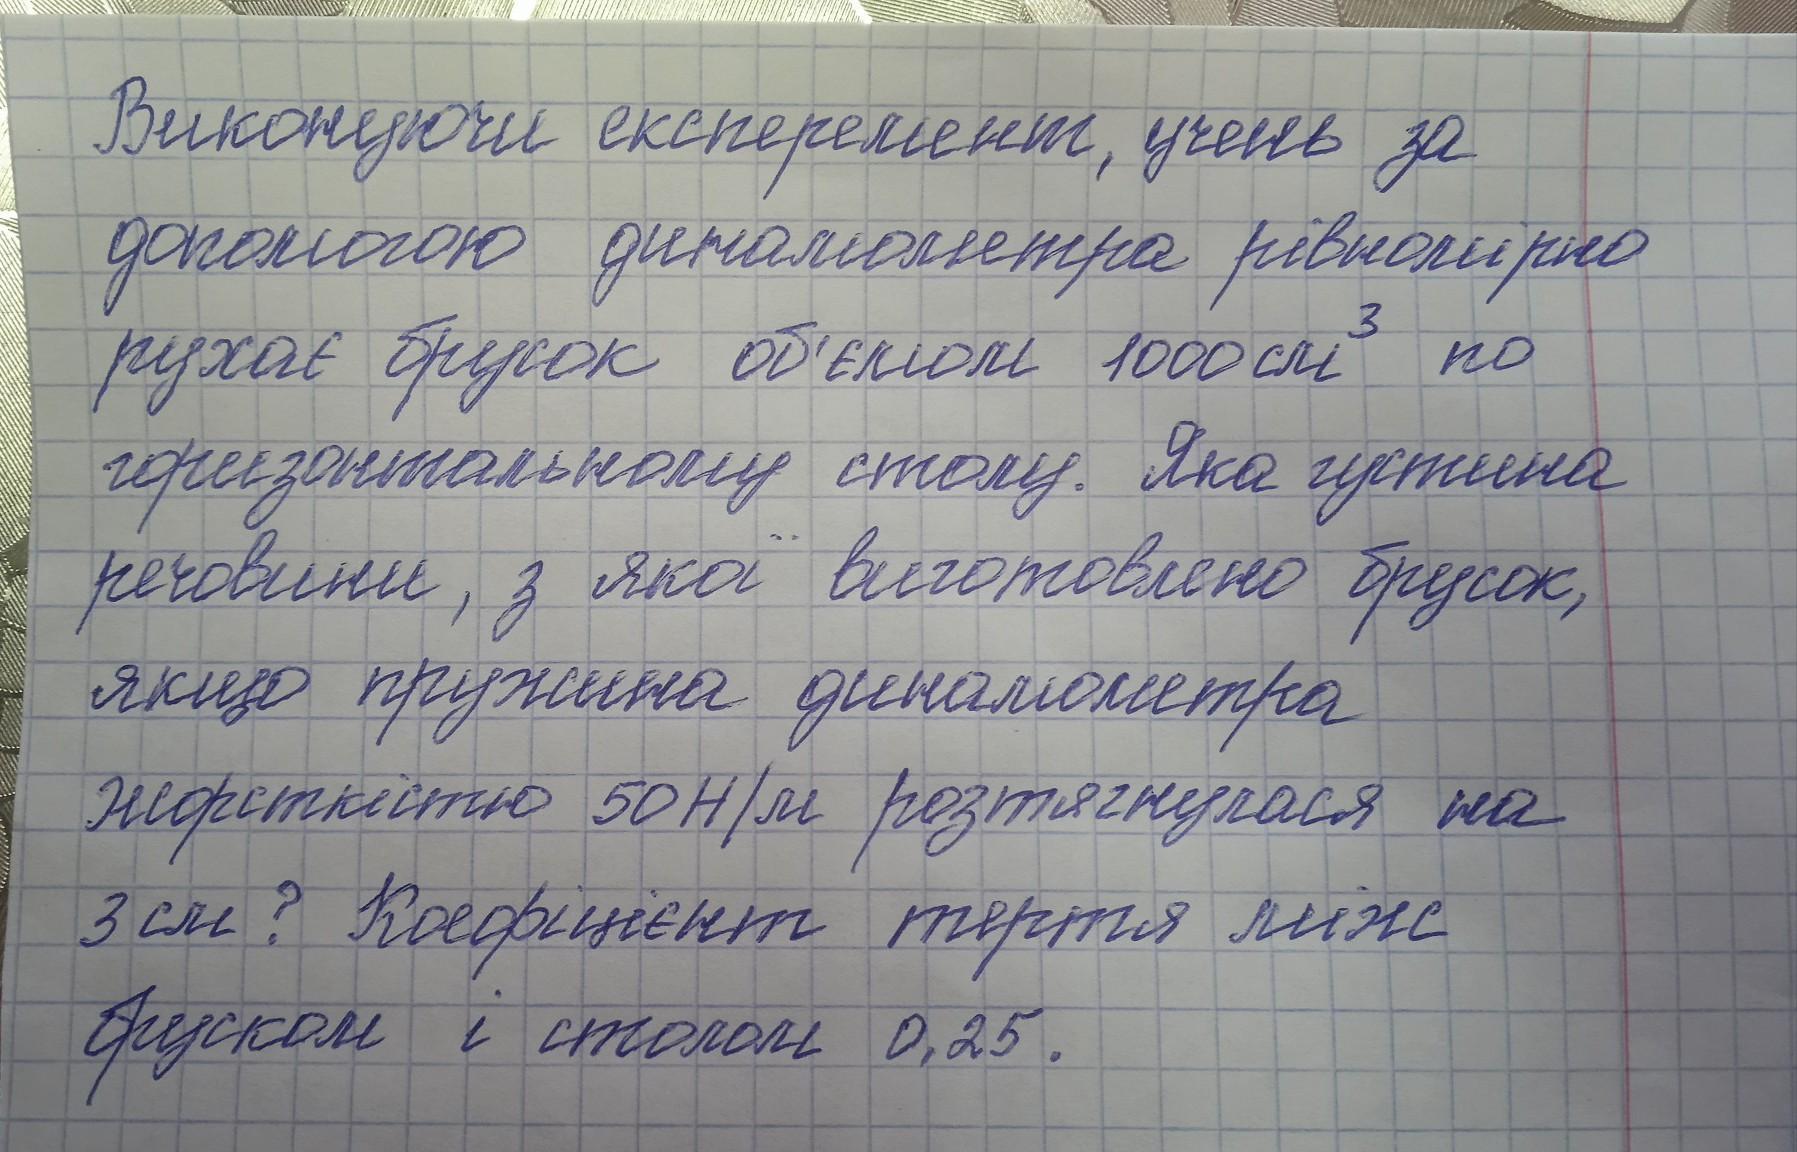 Виконуючи експеремент, учень за
допомогою динамометра рівномірно
рухає брусок об'ємом 1000 см³ по
горизонтальному столу. Яка густина
речовини, з якої виготовлено брусок,
якщо пружина динамометра
жорсткістю 50 Н/м розтягнулася на
3 см? Коефіцієнт тертя між
бруском і столом 0,25.